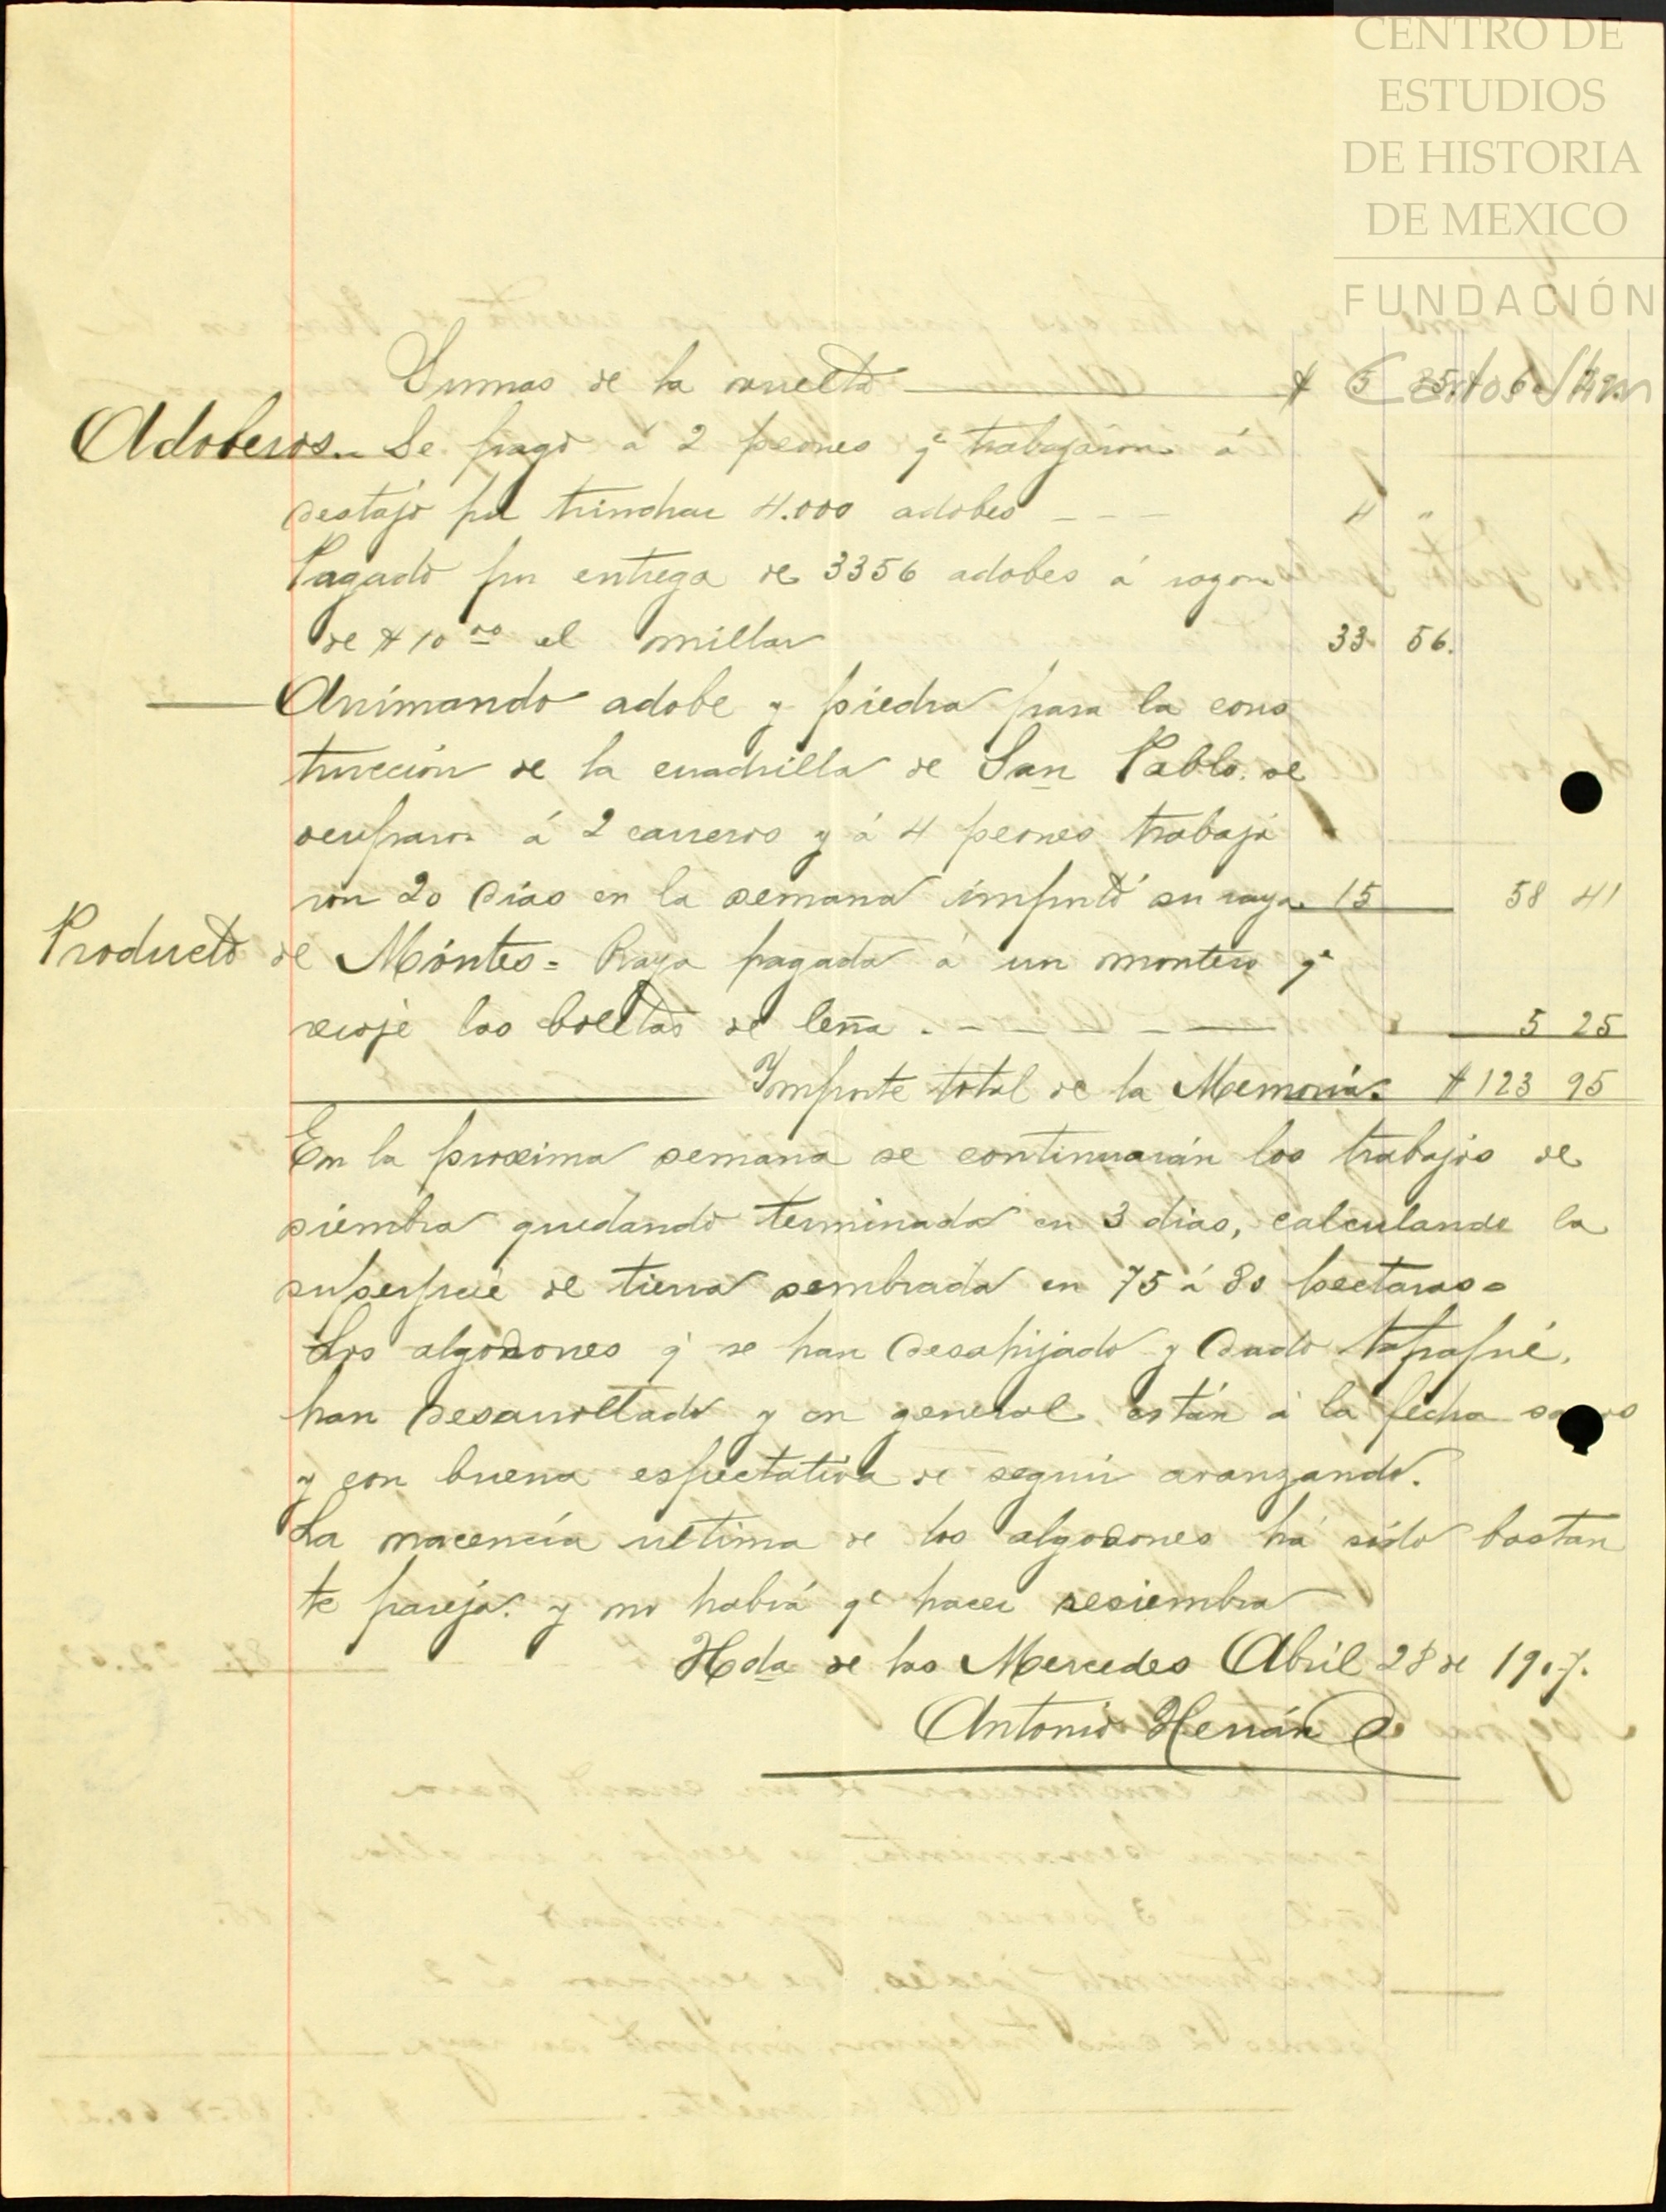 CENTRO DE
ESTUDIOS
DE HISTORIA
DE MEXICO
FUNDACIÓN
Sumas de la vuelta $ 5 85 60 29
Adoberos.- Se pagó á 2 peones qe trabajaron á
destajo por trinchar 4.000 adobes - - - 4 "
Pagado por entrega de 3356 adobes á razon
de $ 10 00 el millar 33 56.
Arrimando adobe y piedra para la cons
trucción de la cuadrilla de San Pablo. se
ocuparon á 2 carreros y á 4 peones trabaja
ron 20 dias en la semana importó su raya 15 58 41
Producto de Móntes = Raya pagada á un montero qe
recoje las boletas de leña . - - - - - 5 25
Importe total de la Memoria. $ 123 95
En la proxima semana se continuarán los trabajos de
siembra quedando terminada en 3 dias, calculando la
superficie de tierra sembrada en 75 á 80 hectaras =
Los algodones q' se han desahijado y dado tapapié,
han desarrollado y en general están á la fecha sanos
y con buena espectativa de seguir avanzando.
La nacencia ultima de los algodones há sido bastan
te pareja. y no habrá qe hacer resiembra
Hda de las Mercedes Abril 28 de 1907.
Antonio Herrán